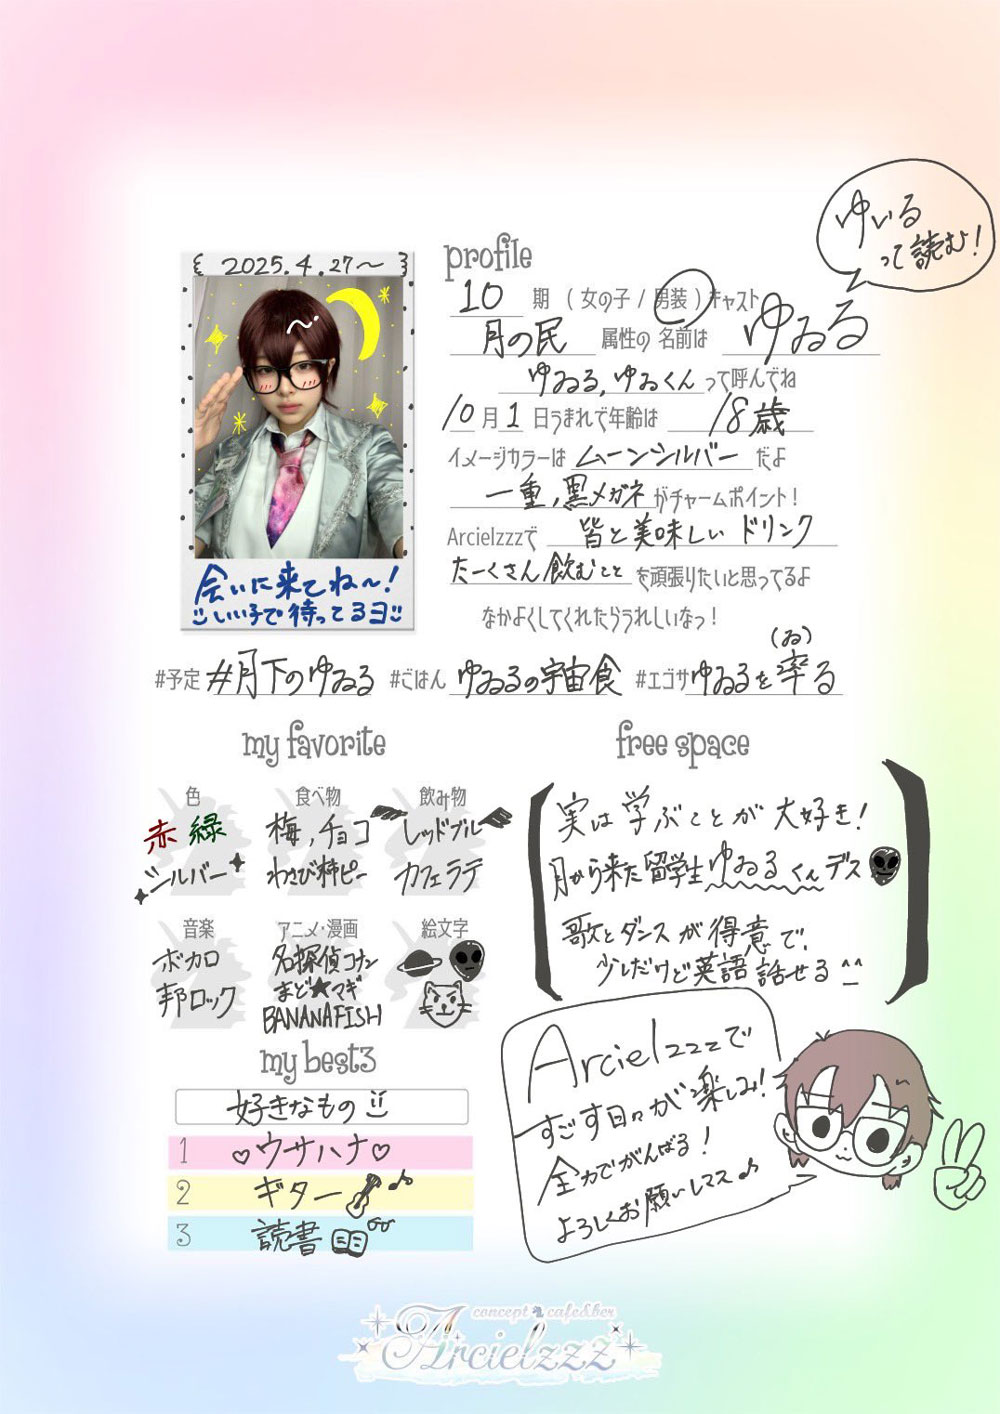 ゆいる
って読む!
2025.4.27〜
会いに来てね〜!
いい子で待ってるヨ
profile
10 期 ( 女の子 / 男装 ) キャスト
月の民 属性の 名前は ゆゐる
ゆゐる,ゆゐくん って呼んでね
10 月 1 日うまれで年齢は 18歳
イメージカラーは ムーンシルバー だよ
一重,黒メガネ がチャームポイント!
Arcielzzzで 皆と美味しい ドリンク
たーくさん飲むこと を頑張りたいと思ってるよ
なかよくしてくれたらうれしいなっ!
(ゐ)
#予定 #月下のゆゐる #ごはん ゆゐるの宇宙食 #エゴサ ゆゐるを率る
my favorite
色 食べ物 飲み物
赤 緑 梅,チョコ レッドブル
シルバー わさび柿ピー カフェラテ
音楽 アニメ・漫画 絵文字
ボカロ 名探偵コナン
邦ロック まど★マギ
BANANAFISH
my best3
好きなもの
1 ♡ウサハナ♡
2 ギター ♪
3 読書
free space
実は 学ぶことが 大好き!
月から来た留学生ゆゐるくんデス
歌とダンスが得意で、
少しだけど英語話せる ^^
Arcielzzzで
すごす日々が楽しみ!
全力でがんばる!
よろしくお願いしマス♪
concept cafe&bar
Arcielzzz